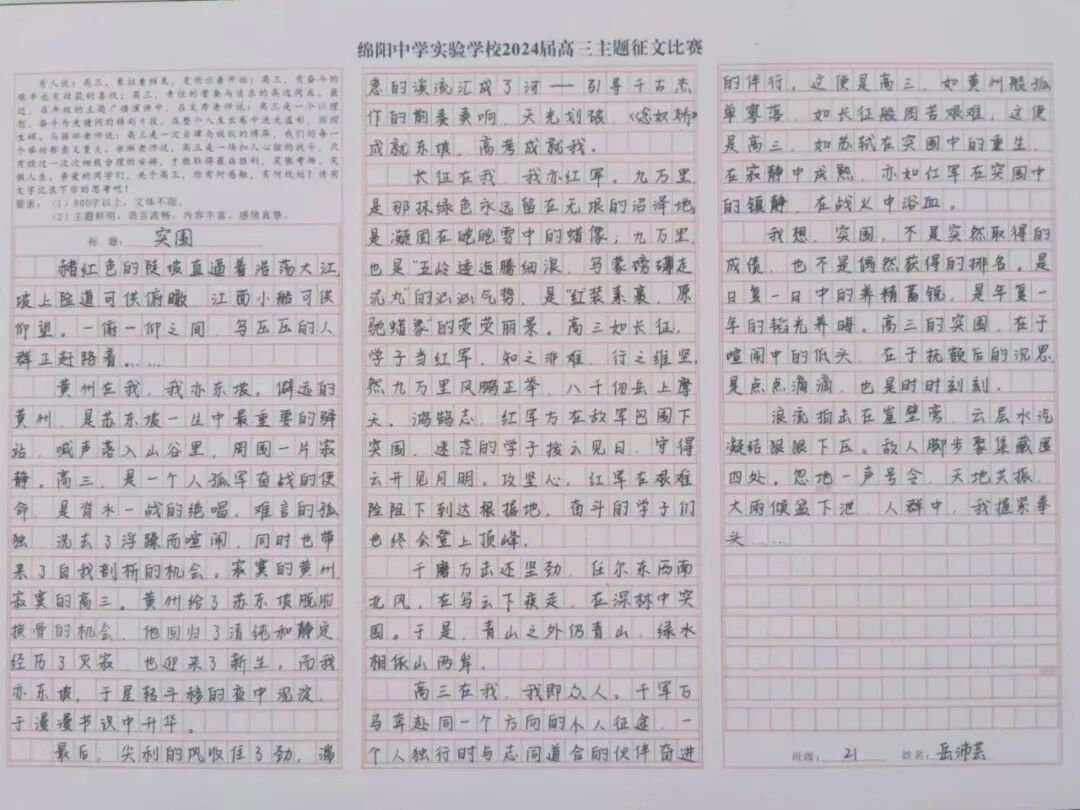 绵阳中学实验学校2024届高三主题征文比赛
有人说：高三，象征着结束，更预示着开始；高三，有奋斗的
艰辛也有收获的喜悦；高三，责任的重要与追求的高远同在。最
近，在年级的主题广播演讲中，吕文秀老师说：高三是一个以理
想、奋斗为关键词的精彩片段，在整个人生长卷中流光溢彩，熠熠
生辉。马丽娅老师说：高三是一次自律与放纵的博弈，我们的每一
个举动都意义重大。余琳老师说，高三是一场扣人心弦的战斗，只
有经过一次次细致合理的安排，才能取得最后胜利，笑傲考场，笑
傲人生。亲爱的同学们，处于高三，你有何感触，有何规划？请用
文字记录下你的思考吧！
要求：（1）800字以上，文体不限。
（2）主题鲜明，语言流畅，内容丰富，感情真挚。
标题： 突围
赭红色的陡坡直逼着浩荡大江，
坡上险道可供俯瞰，江面小船可供
仰望。一俯一仰之间，乌压压的人
群正赶路着……
黄州在我，我亦东坡。僻远的
黄州，是苏东坡一生中最重要的驿
站，喊声落入山谷里，周围一片寂
静。高三，是一个人孤军奋战的使
命，是背水一战的绝唱，难言的孤
独，洗去了浮躁而喧闹，同时也带
来了自我剖析的机会。寂寞的黄州，
寂寞的高三。黄州给了苏东坡脱胎
换骨的机会，他回归了清纯和静定，
经历了灭寂，也迎来了新生，而我
亦东坡，于星转斗移的夜中沉淀，
于漫漫书识中升华。
最后，尖利的风收住了劲，湍
急的溪流汇成了河——引导千古杰
作的前奏奏响，天光划破，《念奴娇》
成就东坡，高考成就我。
长征在我，我亦红军。九万里，
是那抹绿色永远留在无垠的沼泽地，
是凝固在皑皑雪中的蜡像；九万里，
也是“五岭逶迤腾细浪，乌蒙磅礴走
泥丸”的汹汹气势，是“红装素裹，原
驰蜡象”的荧荧丽景。高三如长征，
学子当红军，知之非难，行之维坚，
然九万里风鹏正举，八千仞岳上摩
天。鸿鹄志，红军方在敌军包围下
突围，迷茫的学子拨云见日，守得
云开见月明。攻坚心，红军在艰难
险阻下到达根据地，奋斗的学子们
也终会登上顶峰。
千磨万击还坚劲，任尔东西南
北风。在乌云下疾走，在深林中突
围。于是，青山之外仍青山，绿水
相依山两岸。
高三在我，我即众人。千军万
马奔赴同一个方向的个人征途，一
个人独行时与志同道合的伙伴奋进
的伴行，这便是高三，如黄州般孤
单寥落，如长征般困苦艰难，这便
是高三，如苏轼在突围中的重生，
在寂静中成熟，亦如红军在突围中
的镇静，在战火中浴血。
我想，突围，不是突然取得的
成绩，也不是偶然获得的排名。是
日复一日中的养精蓄锐，是年复一
年的韬光养晦。高三的突围，在于
喧闹中的低头，在于抚额后的沉思，
是点点滴滴，也是时时刻刻。
浪流拍击在崖壁湾，云层水汽
凝结狠狠下压。敌人脚步聚集藏匿
四处。忽地一声号令，天地共振，
大雨倾盆下泄，人群中，我握紧拳
头……
班级： 21 姓名：岳沛芸